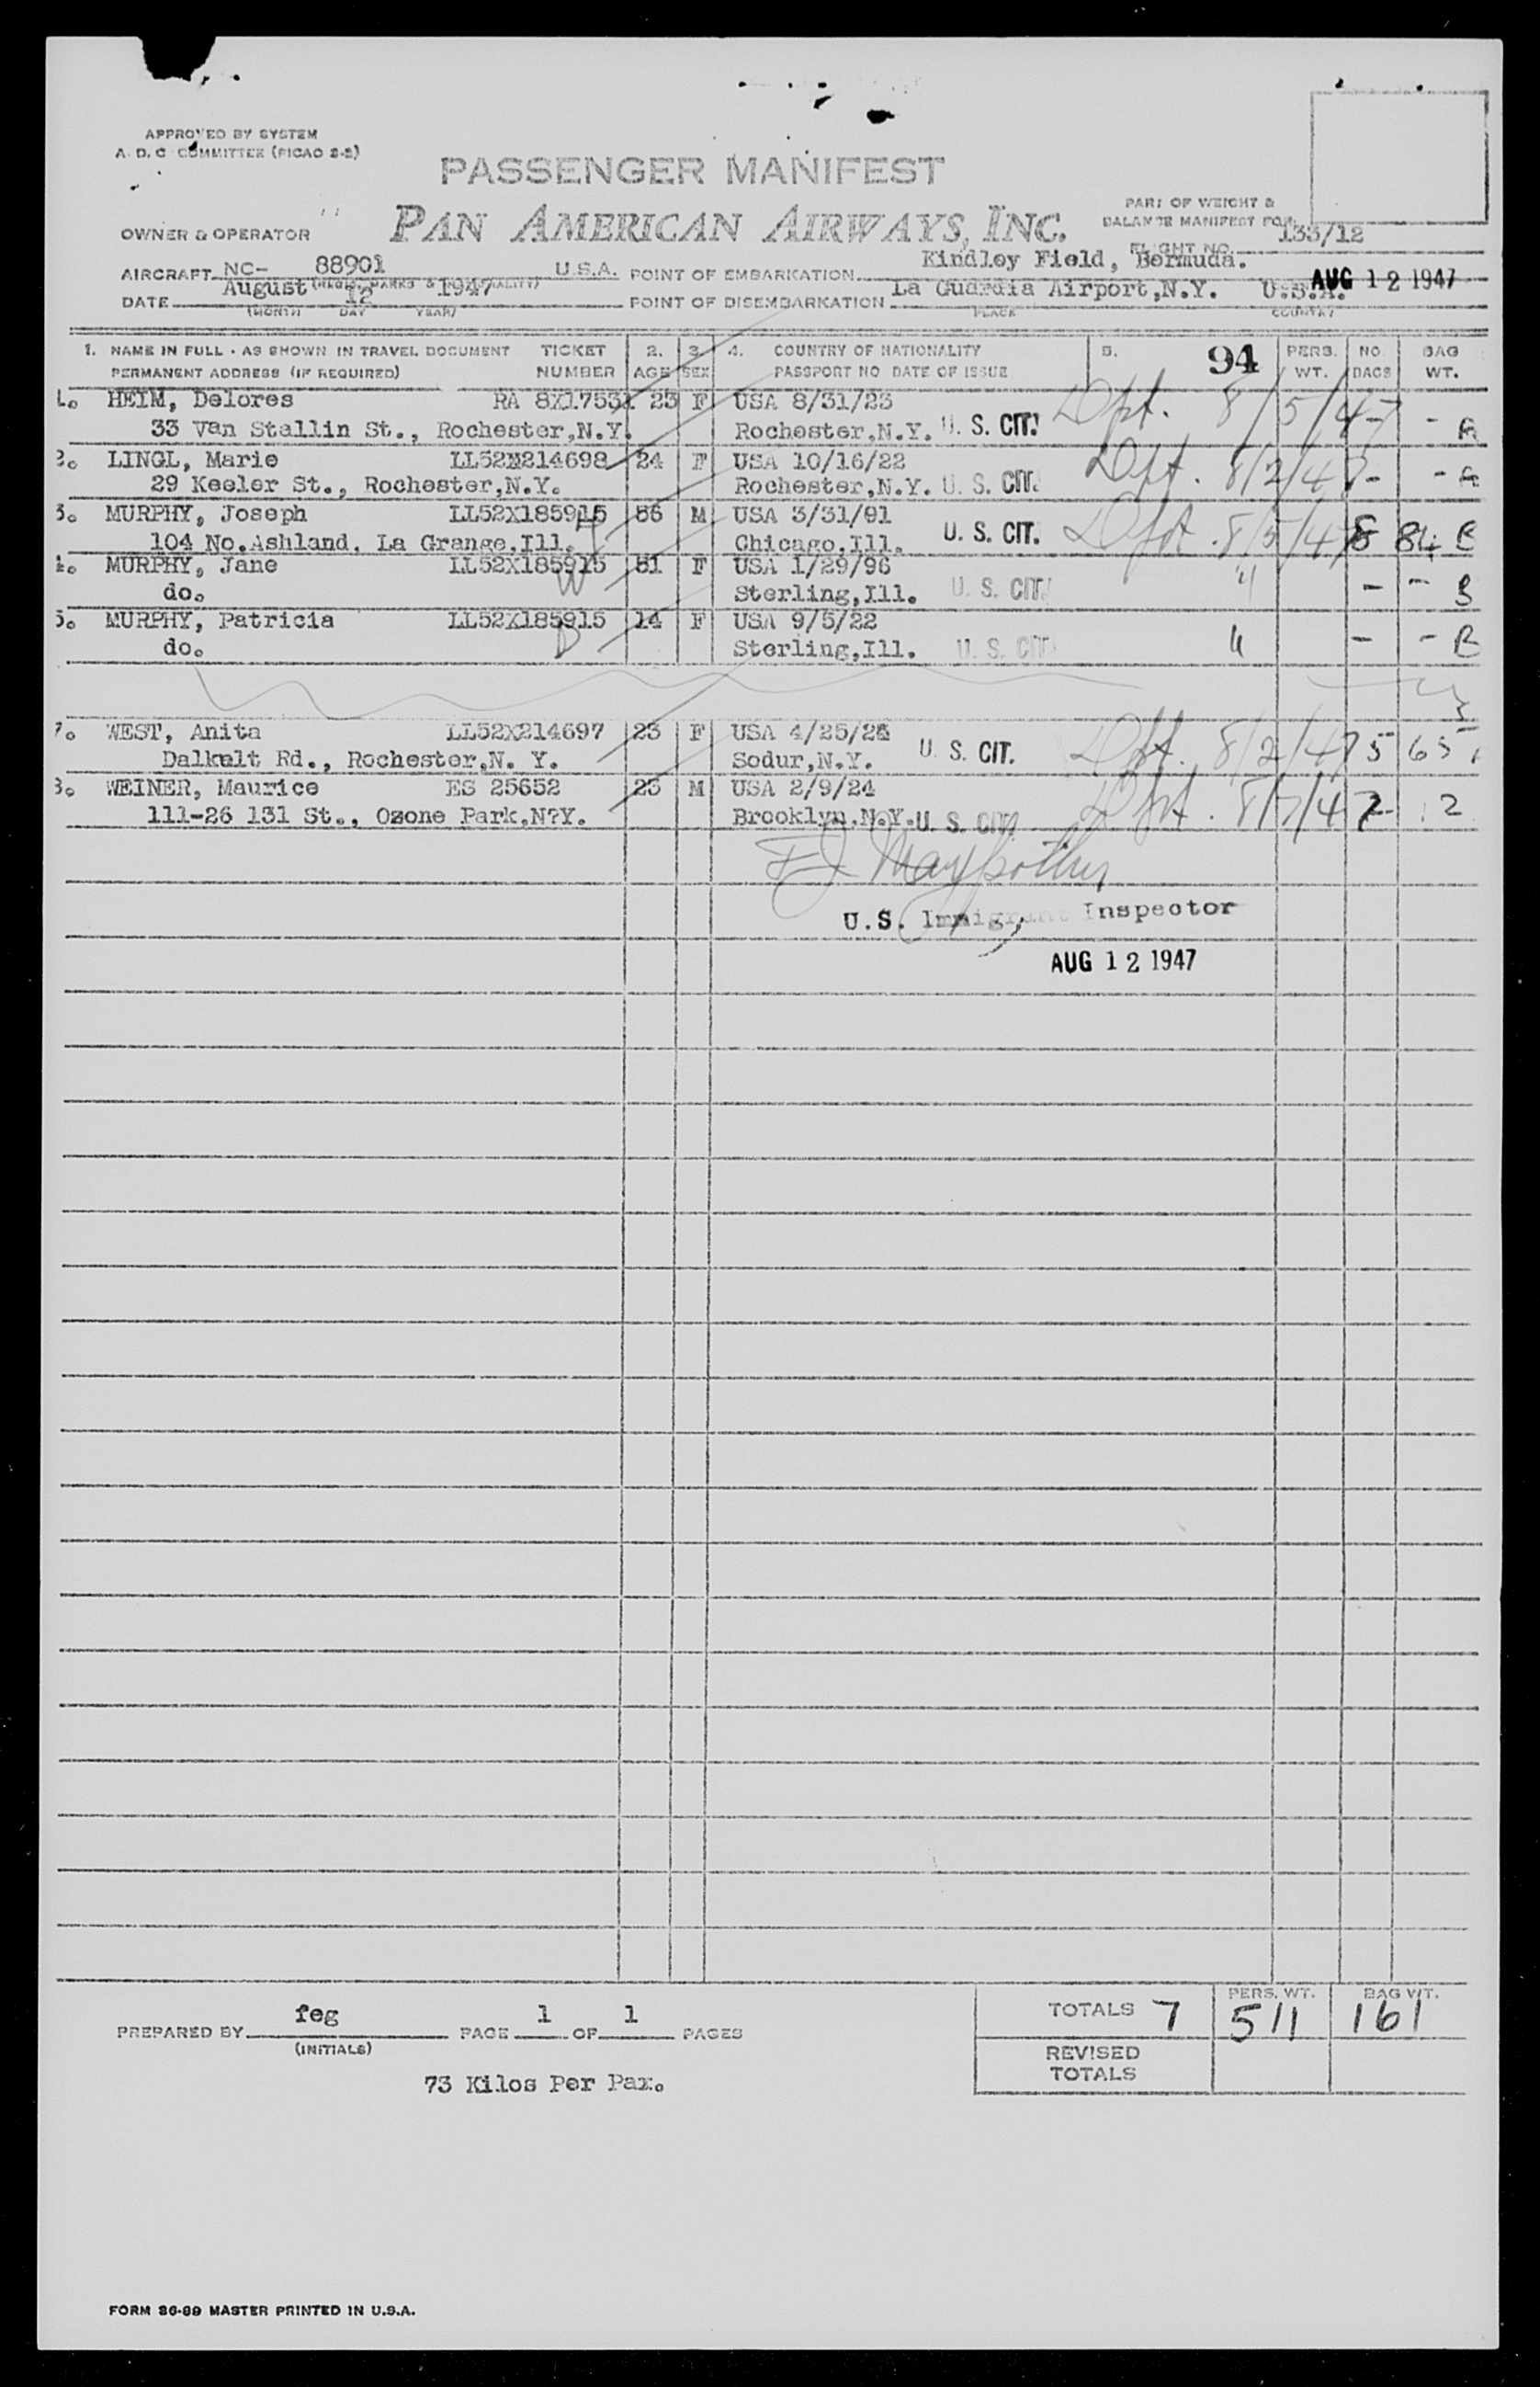 APPROVED BY SYSTEM
A. D. C COMMITTEE (PICAO 2-2)
PASSENGER MANIFEST
PAN AMERICAN AIRWAYS, INC.
PART OF WEIGHT &
BALANCE MANIFEST FOR
OWNER & OPERATOR
FLIGHT NO. 133/12
AIRCRAFT NC- 88901 U.S.A. POINT OF EMBARKATION Kindley Field, Bermuda.
DATE August 12 1947 POINT OF DISEMBARKATION La Guardia Airport,N.Y. U.S.A. AUG 12 1947
(MONTH DAY YEAR) PLACE COUNTRY
1. NAME IN FULL - AS SHOWN IN TRAVEL DOCUMENT TICKET 2. 3. 4. COUNTRY OF NATIONALITY 5. 94 PERS. NO. BAG
PERMANENT ADDRESS (IF REQUIRED) NUMBER AGE SEX PASSPORT NO DATE OF ISSUE WT. BAGS WT.
1. HEIM, Delores RA 8X17531 23 F USA 8/31/23 Dpt. 8/5/47 -
33 Van Stallin St., Rochester,N.Y. Rochester,N.Y. U. S. CIT. A
2. LINGL, Marie LL52X214698 24 F USA 10/16/22 Dpt. 8/2/47 - - A
29 Keeler St., Rochester,N.Y. Rochester,N.Y. U. S. CIT.
3. MURPHY, Joseph LL52X185915 56 M USA 3/31/91 U. S. CIT. Dpt. 8/5/47 8 84 B
104 No.Ashland, La Grange,Ill. Chicago,Ill.
4. MURPHY, Jane LL52X185915 51 F USA 1/29/96 " - - B
do. W Sterling,Ill. U. S. CIT.
5. MURPHY, Patricia LL52X185915 14 F USA 9/5/22 " - - B
do. D Sterling,Ill. U. S. CIT
7. WEST, Anita LL52X214697 23 F USA 4/25/24 U. S. CIT. Dpt. 8/2/47 5 65
Dalkult Rd., Rochester,N. Y. Sodur,N.Y.
8. WEINER, Maurice ES 25652 23 M USA 2/9/24 Dpt. 8/7/47 2 12
111-26 131 St., Ozone Park,N?Y. Brooklyn.N.Y. U. S. CIT
U.S. Immigrant Inspector
AUG 12 1947
PREPARED BY feg PAGE 1 OF 1 PAGES
(INITIALS)
73 Kilos Per Pax.
TOTALS 7 PERS. WT. 511 BAG WT. 161
REVISED
TOTALS
FORM 26-99 MASTER PRINTED IN U.S.A.